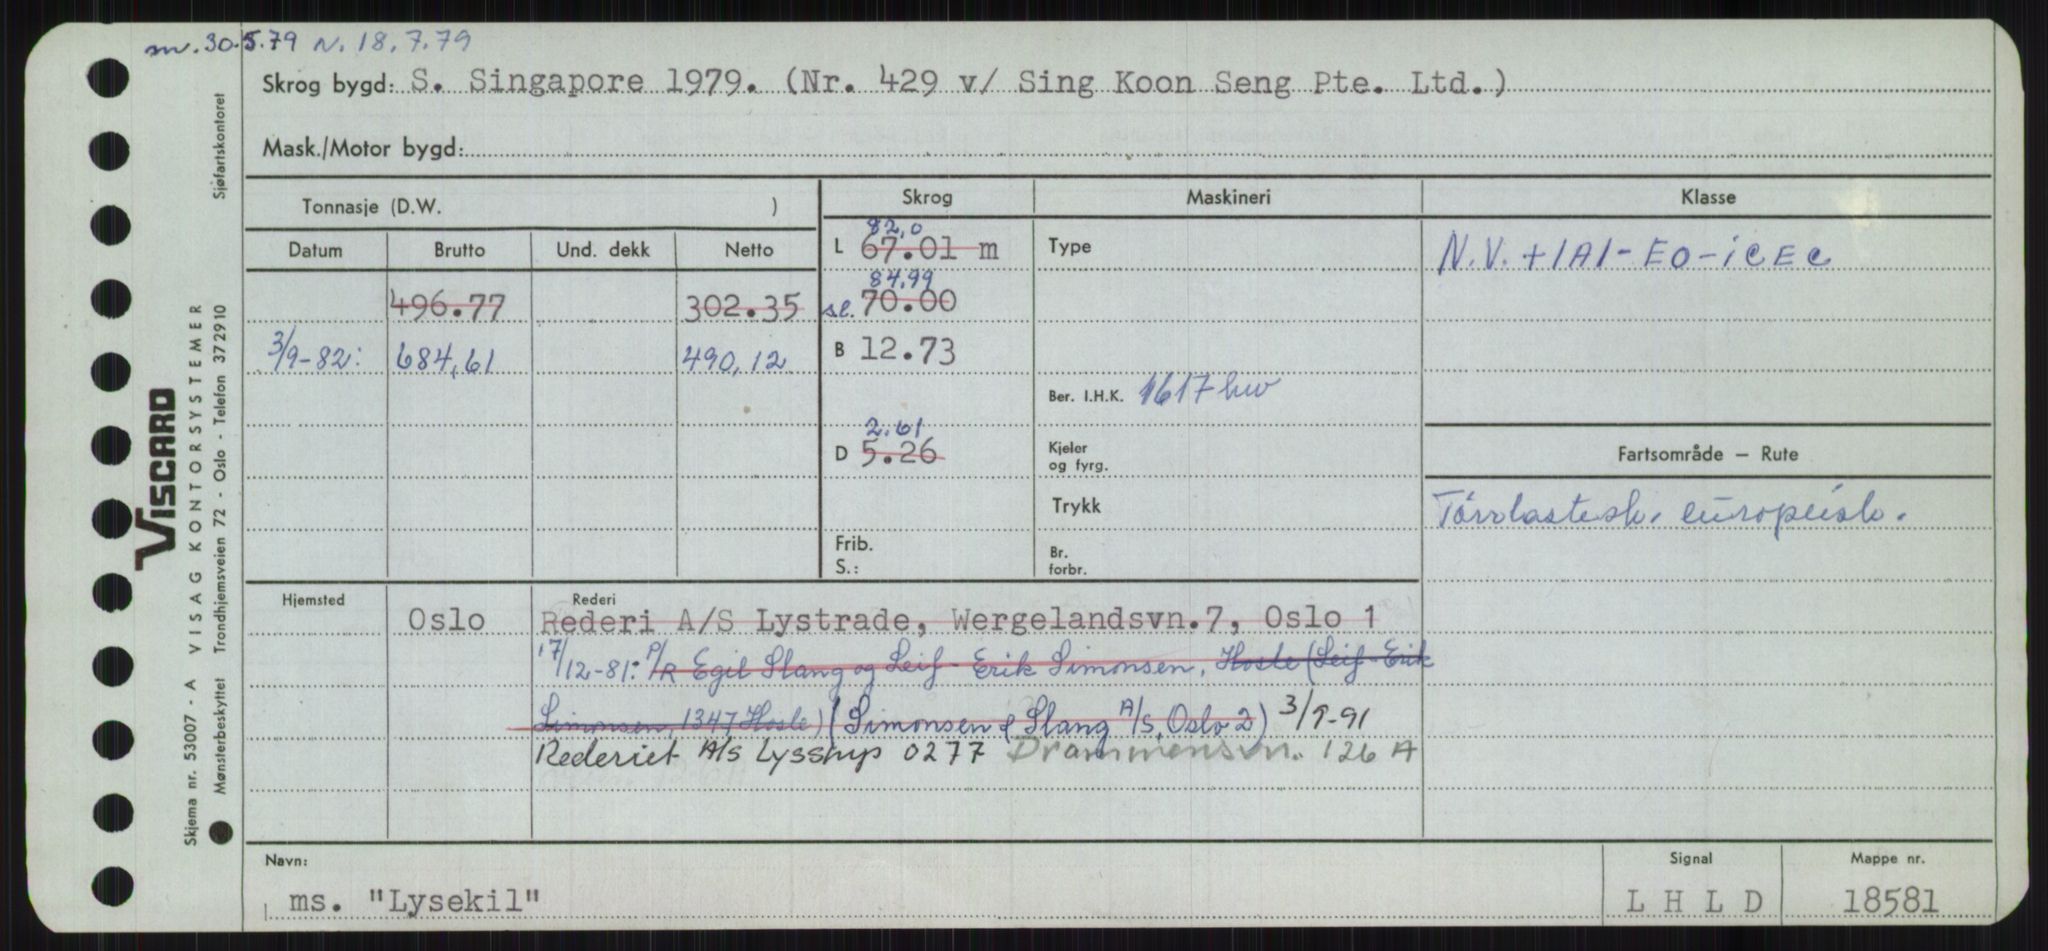 m. 30.5.79 N. 18.7.79
Skrog bygd: S. Singapore 1979. (Nr. 429 v/ Sing Koon Seng Pte. Ltd.)
Mask./Motor bygd:
Tonnasje (D.W. )
Skrog Maskineri Klasse
Datum Brutto Und. dekk Netto
82,0
L 67.01 m Type N.V. +1A1-EO-iCEC
84,99
496.77 302.35 s.l. 70.00
3/9-82: 684,61 490,12 B 12.73
Ber. I.H.K. 1617 kw
2.61
D 5.26 Kjeler og fyrg.
Fartsområde – Rute
Trykk Tørrlastesk. europeisk.
Frib. S.: Br. forbr.
Hjemsted Rederi
Oslo Rederi A/S Lystrade, Wergelandsvn.7, Oslo 1
17/12-81: P/R Egil Slang og Leif-Erik Simonsen, Hosle (Leif-Erik
Simonsen, 1347 Hosle) (Simonsen & Slang A/S, Oslo 2) 3/9-91
Rederiet A/S Lysskip 0277 Drammensvn. 126 A
Navn: Signal Mappe nr.
ms. "Lysekil" L H L D 18581
VISCARD
VISAG KONTORSYSTEMER
Skjema nr. 53007 - A
Mønsterbeskyttet Trondhjemsveien 72 - Oslo - Telefon 372910
Sjøfartskontoret